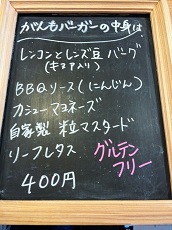 がんもバーガーの中身は
レンコンとレンズ豆バーグ
(キヌア入り)
BBQソース(にんじん)
カシューマヨネーズ
自家製 粒マスタード
リーフレタス
グルテン
フリー
400円